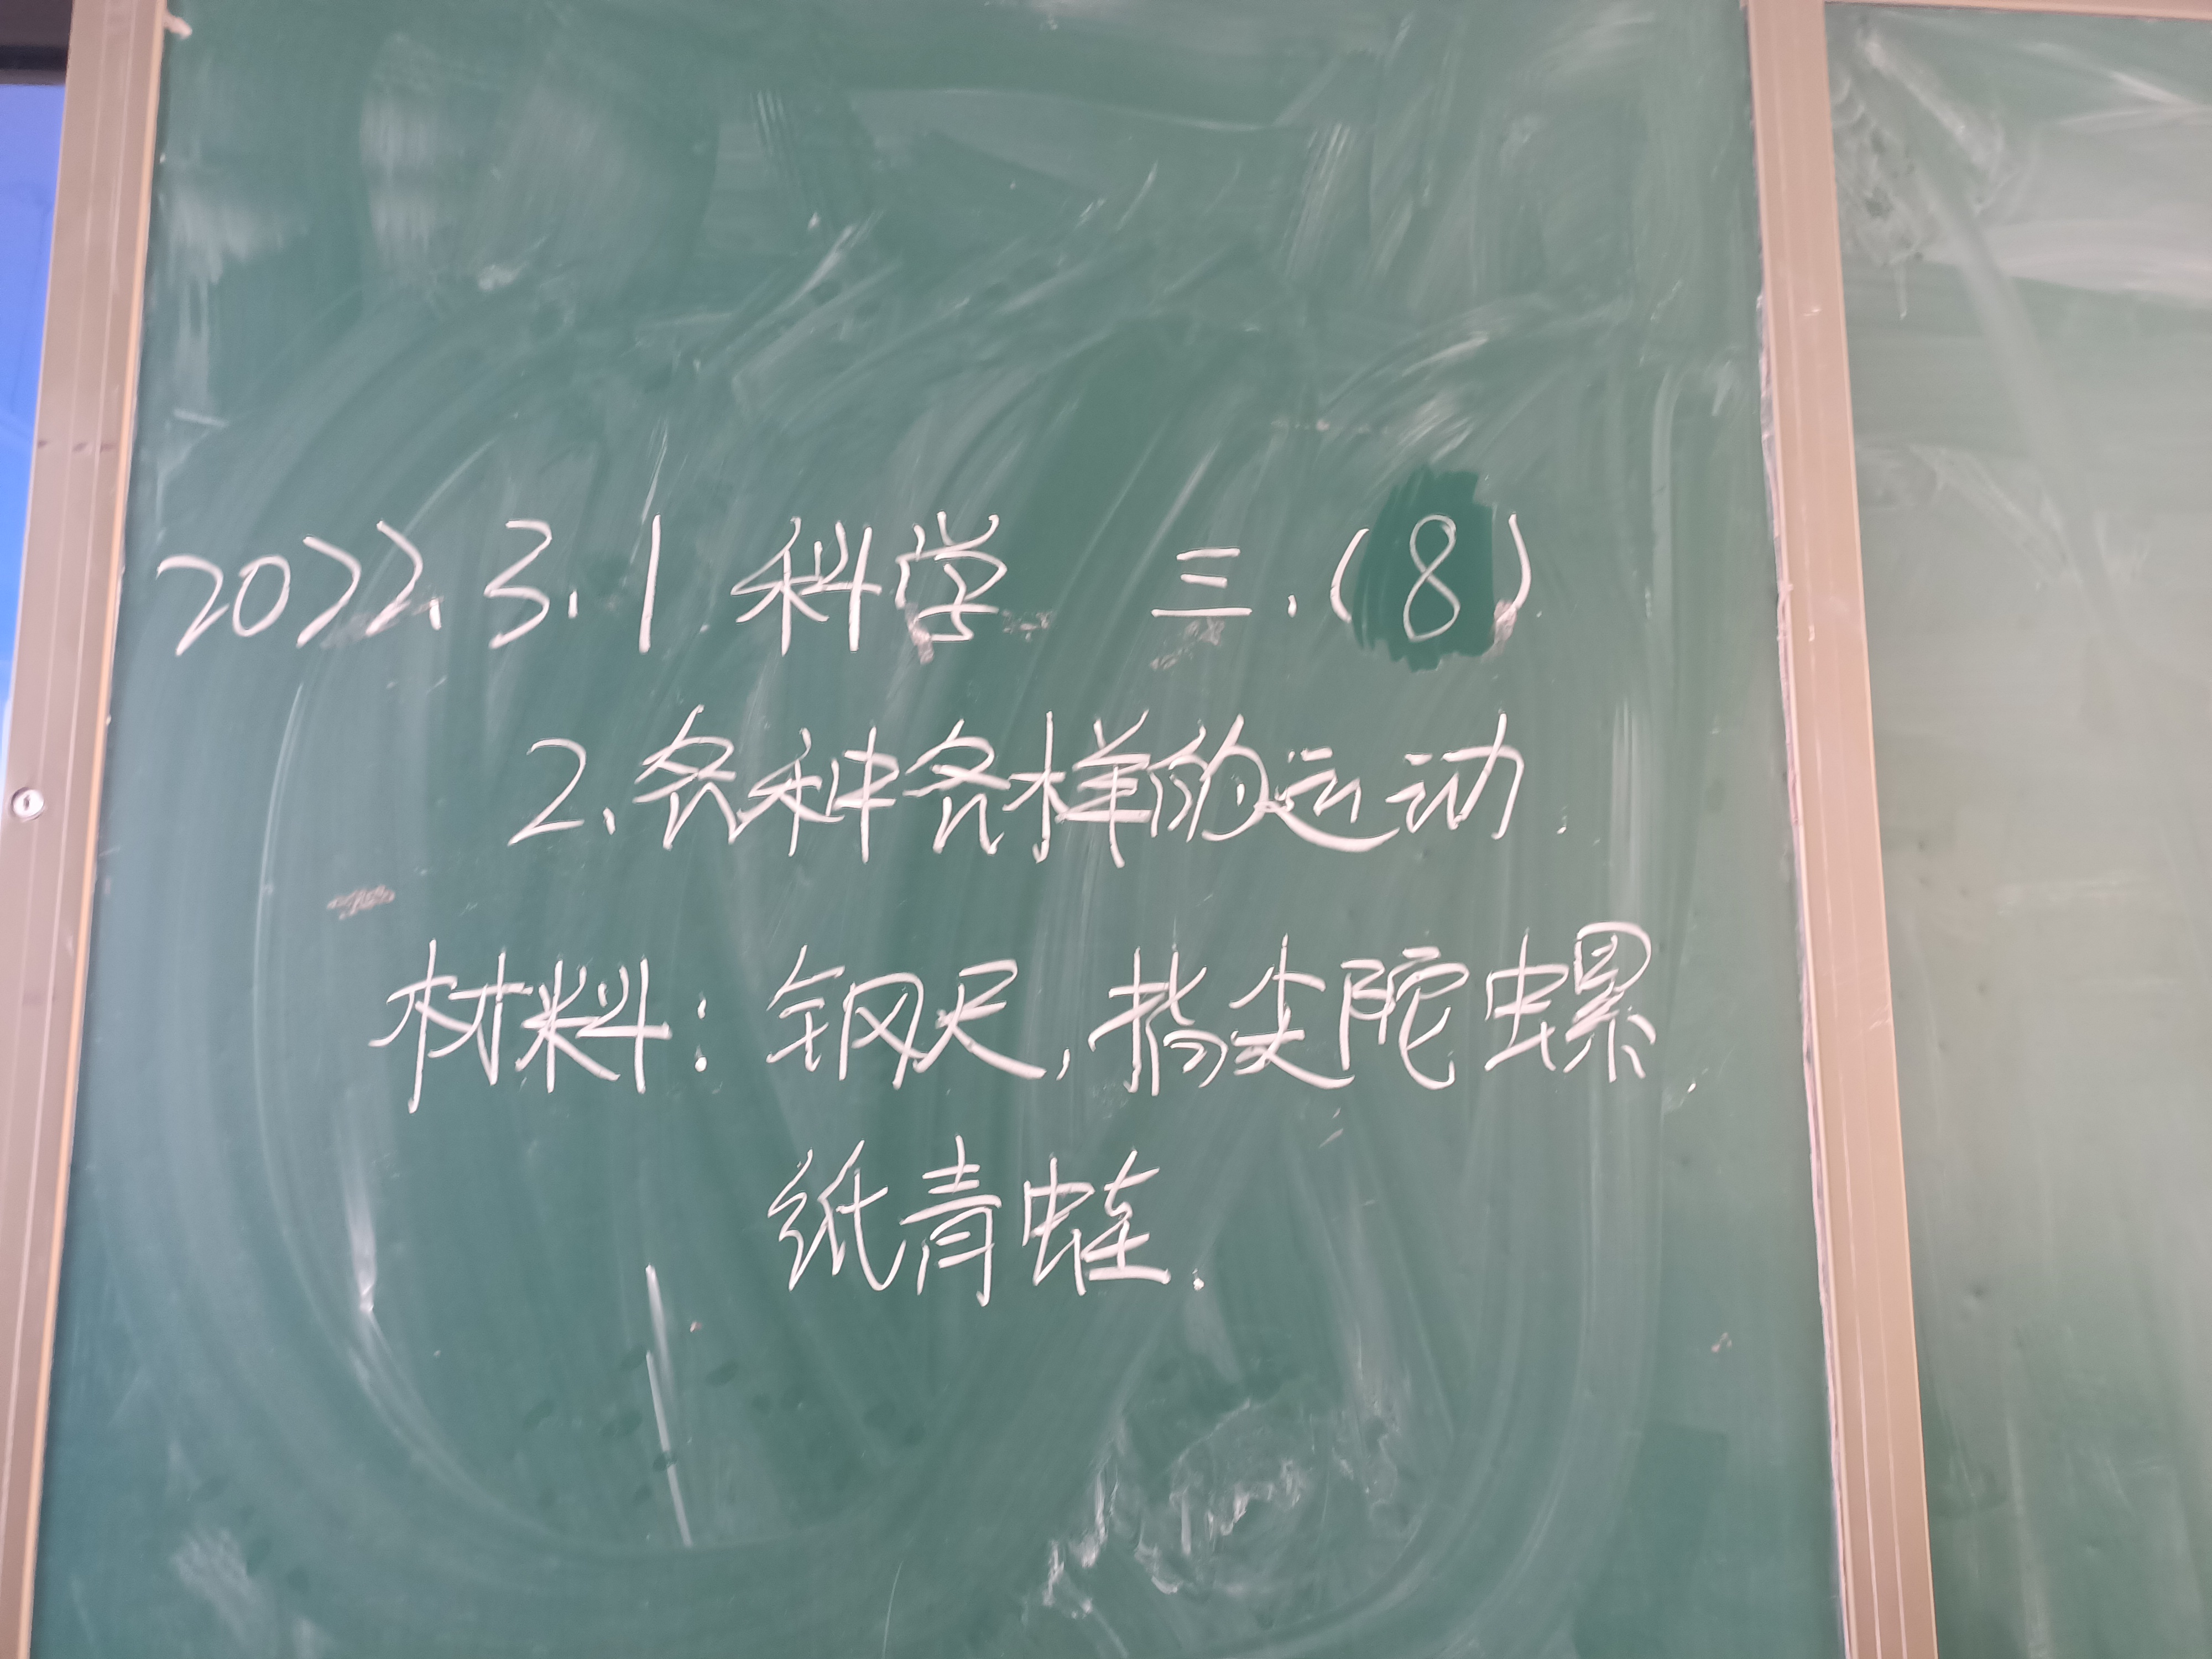 2022.3.1 科学 三.(8)
2.各种各样的运动.
材料：钢尺,指尖陀螺.
纸青蛙.